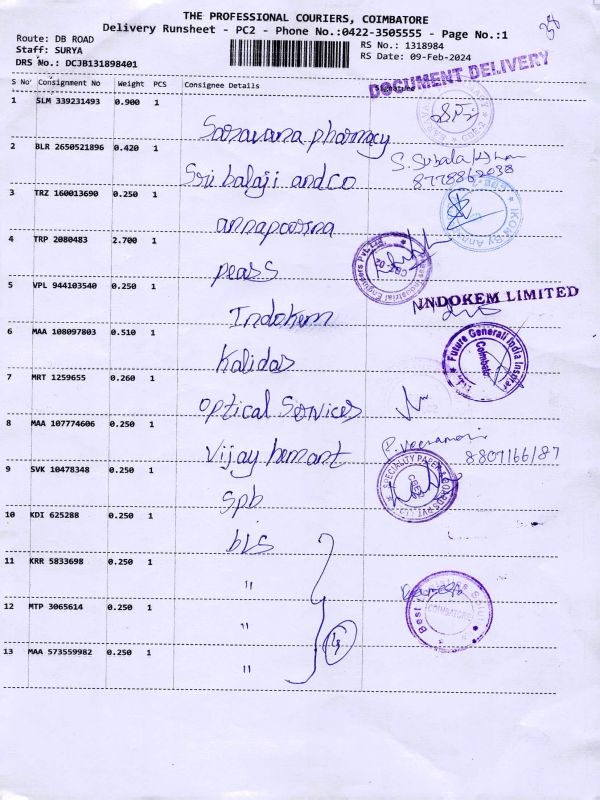 THE PROFESSIONAL COURIERS, COIMBATORE
Delivery Runsheet - PC2 - Phone No.:0422-3505555 - Page No.:1
38
Route: DB ROAD
Staff: SURYA
DRS No.: DCJB131898401
RS No.: 1318984
RS Date: 09-Feb-2024
DOCUMENT DELIVERY
S No Consignment No Weight PCS Consignee Details Signature
1 SLM 339231493 0.900 1 Saravana pharmacy
2 BLR 2650521896 0.420 1 Sri balaji and co
8778862038
3 TRZ 160013690 0.250 1 annapoorna
4 TRP 2080483 2.700 1 peass
5 VPL 944103540 0.250 1 Indokem
INDOKEM LIMITED
6 MAA 108097803 0.510 1 Kalidas
Future Generali India Insuran
Coimbato
7 MRT 1259655 0.260 1 optical Services
8 MAA 107774606 0.250 1 Vijay hemant
P. Veeramani
8807166187
9 SVK 10478348 0.250 1 Spb
SPECIALITY PAPER & BOARDS PVT. LTD
10 KDI 625288 0.250 1 bls
11 KRR 5833698 0.250 1 "
12 MTP 3065614 0.250 1 "
COIMBATORE
13 MAA 573559982 0.250 1 "